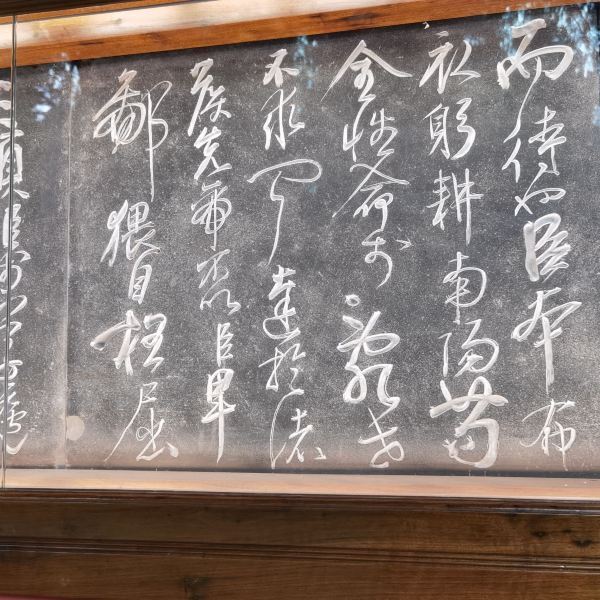 而待也臣本布
衣躬耕南陽苟
全性命於亂世
不求聞達於諸
侯先帝不以臣卑
鄙猥自枉屈
三顧臣於草廬